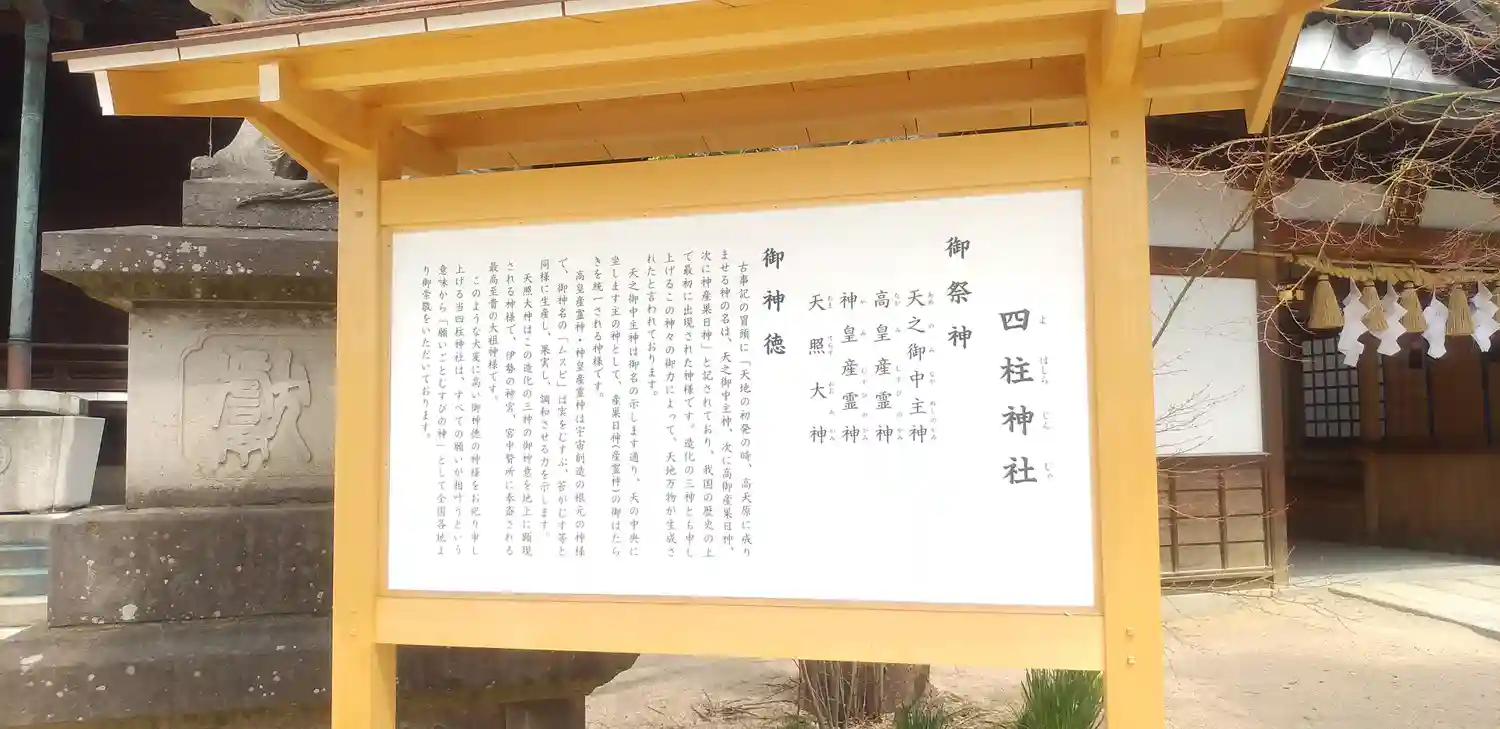 四柱神社
よ はしら じん じゃ
御祭神
天之御中主神
あめ の み なか ぬしのかみ
高皇産霊神
たか み むすび のかみ
神皇産霊神
か み むすびのかみ
天照大神
あま てらす おお みかみ
御神徳
古事記の冒頭に「天地の初発の時、高天原に成り
ませる神の名は、天之御中主神、次に高御産巣日神、
次に神産巣日神」と記されており、我国の歴史の上
で最初に出現された神様です。造化の三神とも申し
上げるこの神々の御力によって、天地万物が生成さ
れたと言われております。
天之御中主神は御名の示します通り、天の中央に
坐します主の神として、産巣日神(産霊神)の御はたら
きを統一される神様です。
高皇産霊神・神皇産霊神は宇宙創造の根元の神様
で、御神名の「ムスビ」は実をむすぶ、苔がむす等と
同様に生産し、果実し、調和させる力を示します。
天照大神はこの造化の三神の御神意を地上に顕現
される神様で、伊勢の神宮、宮中賢所に奉斎される
最高至貴の大祖神様です。
このような大変に高い御神徳の神様をお祀り申し
上げる当四柱神社は、すべての願いが相叶うという
意味から「願いごとむすびの神」として全国各地よ
り御崇敬をいただいております。
献